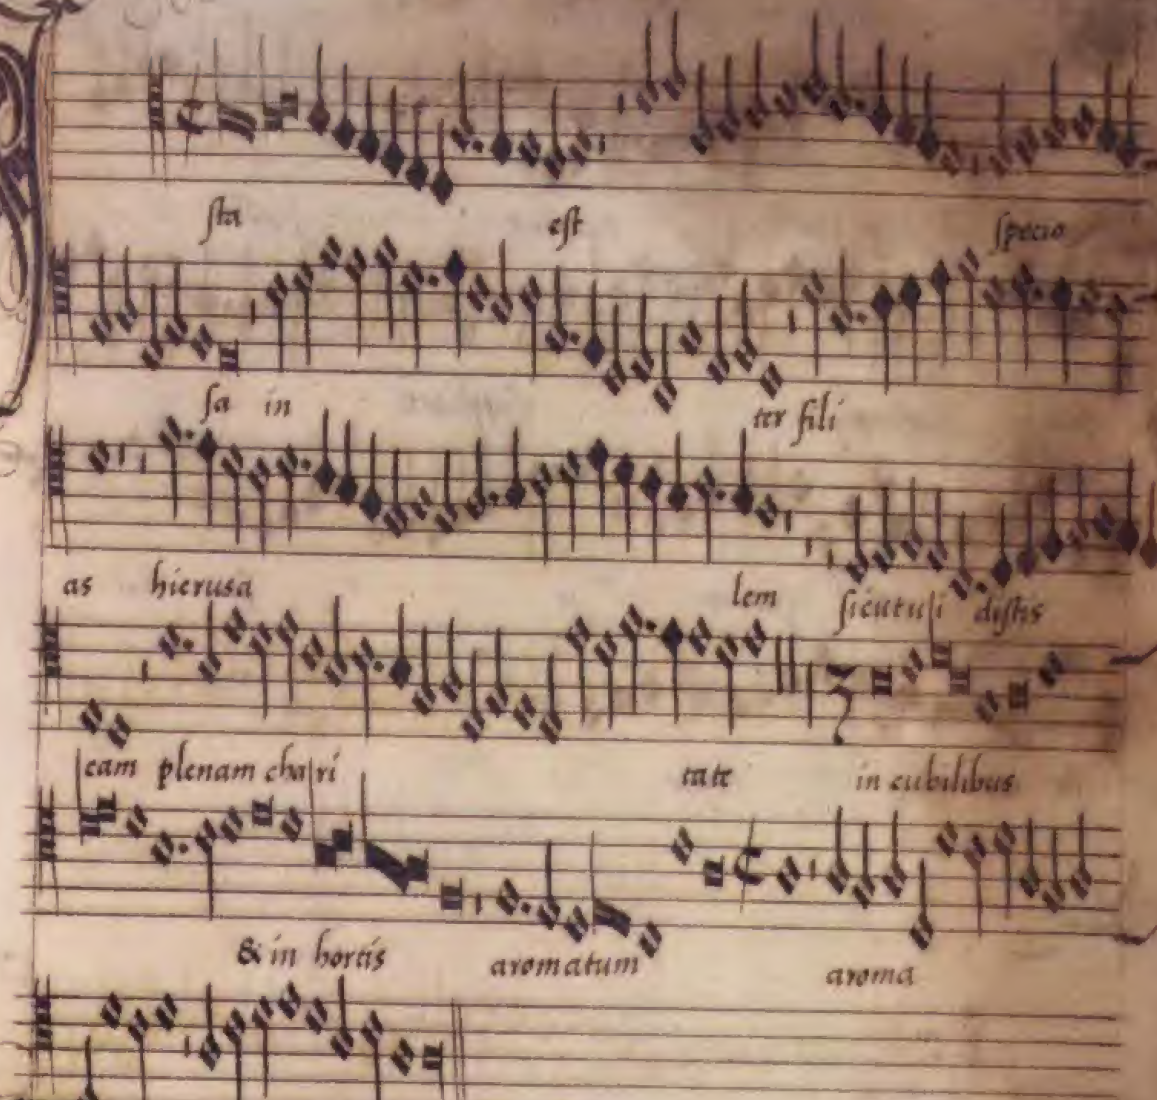 sta est specio
sa in ter fili
as hierusa lem sicut uidistis
eam plenam chari tate in cubilibus
& in hortis aromatum aroma